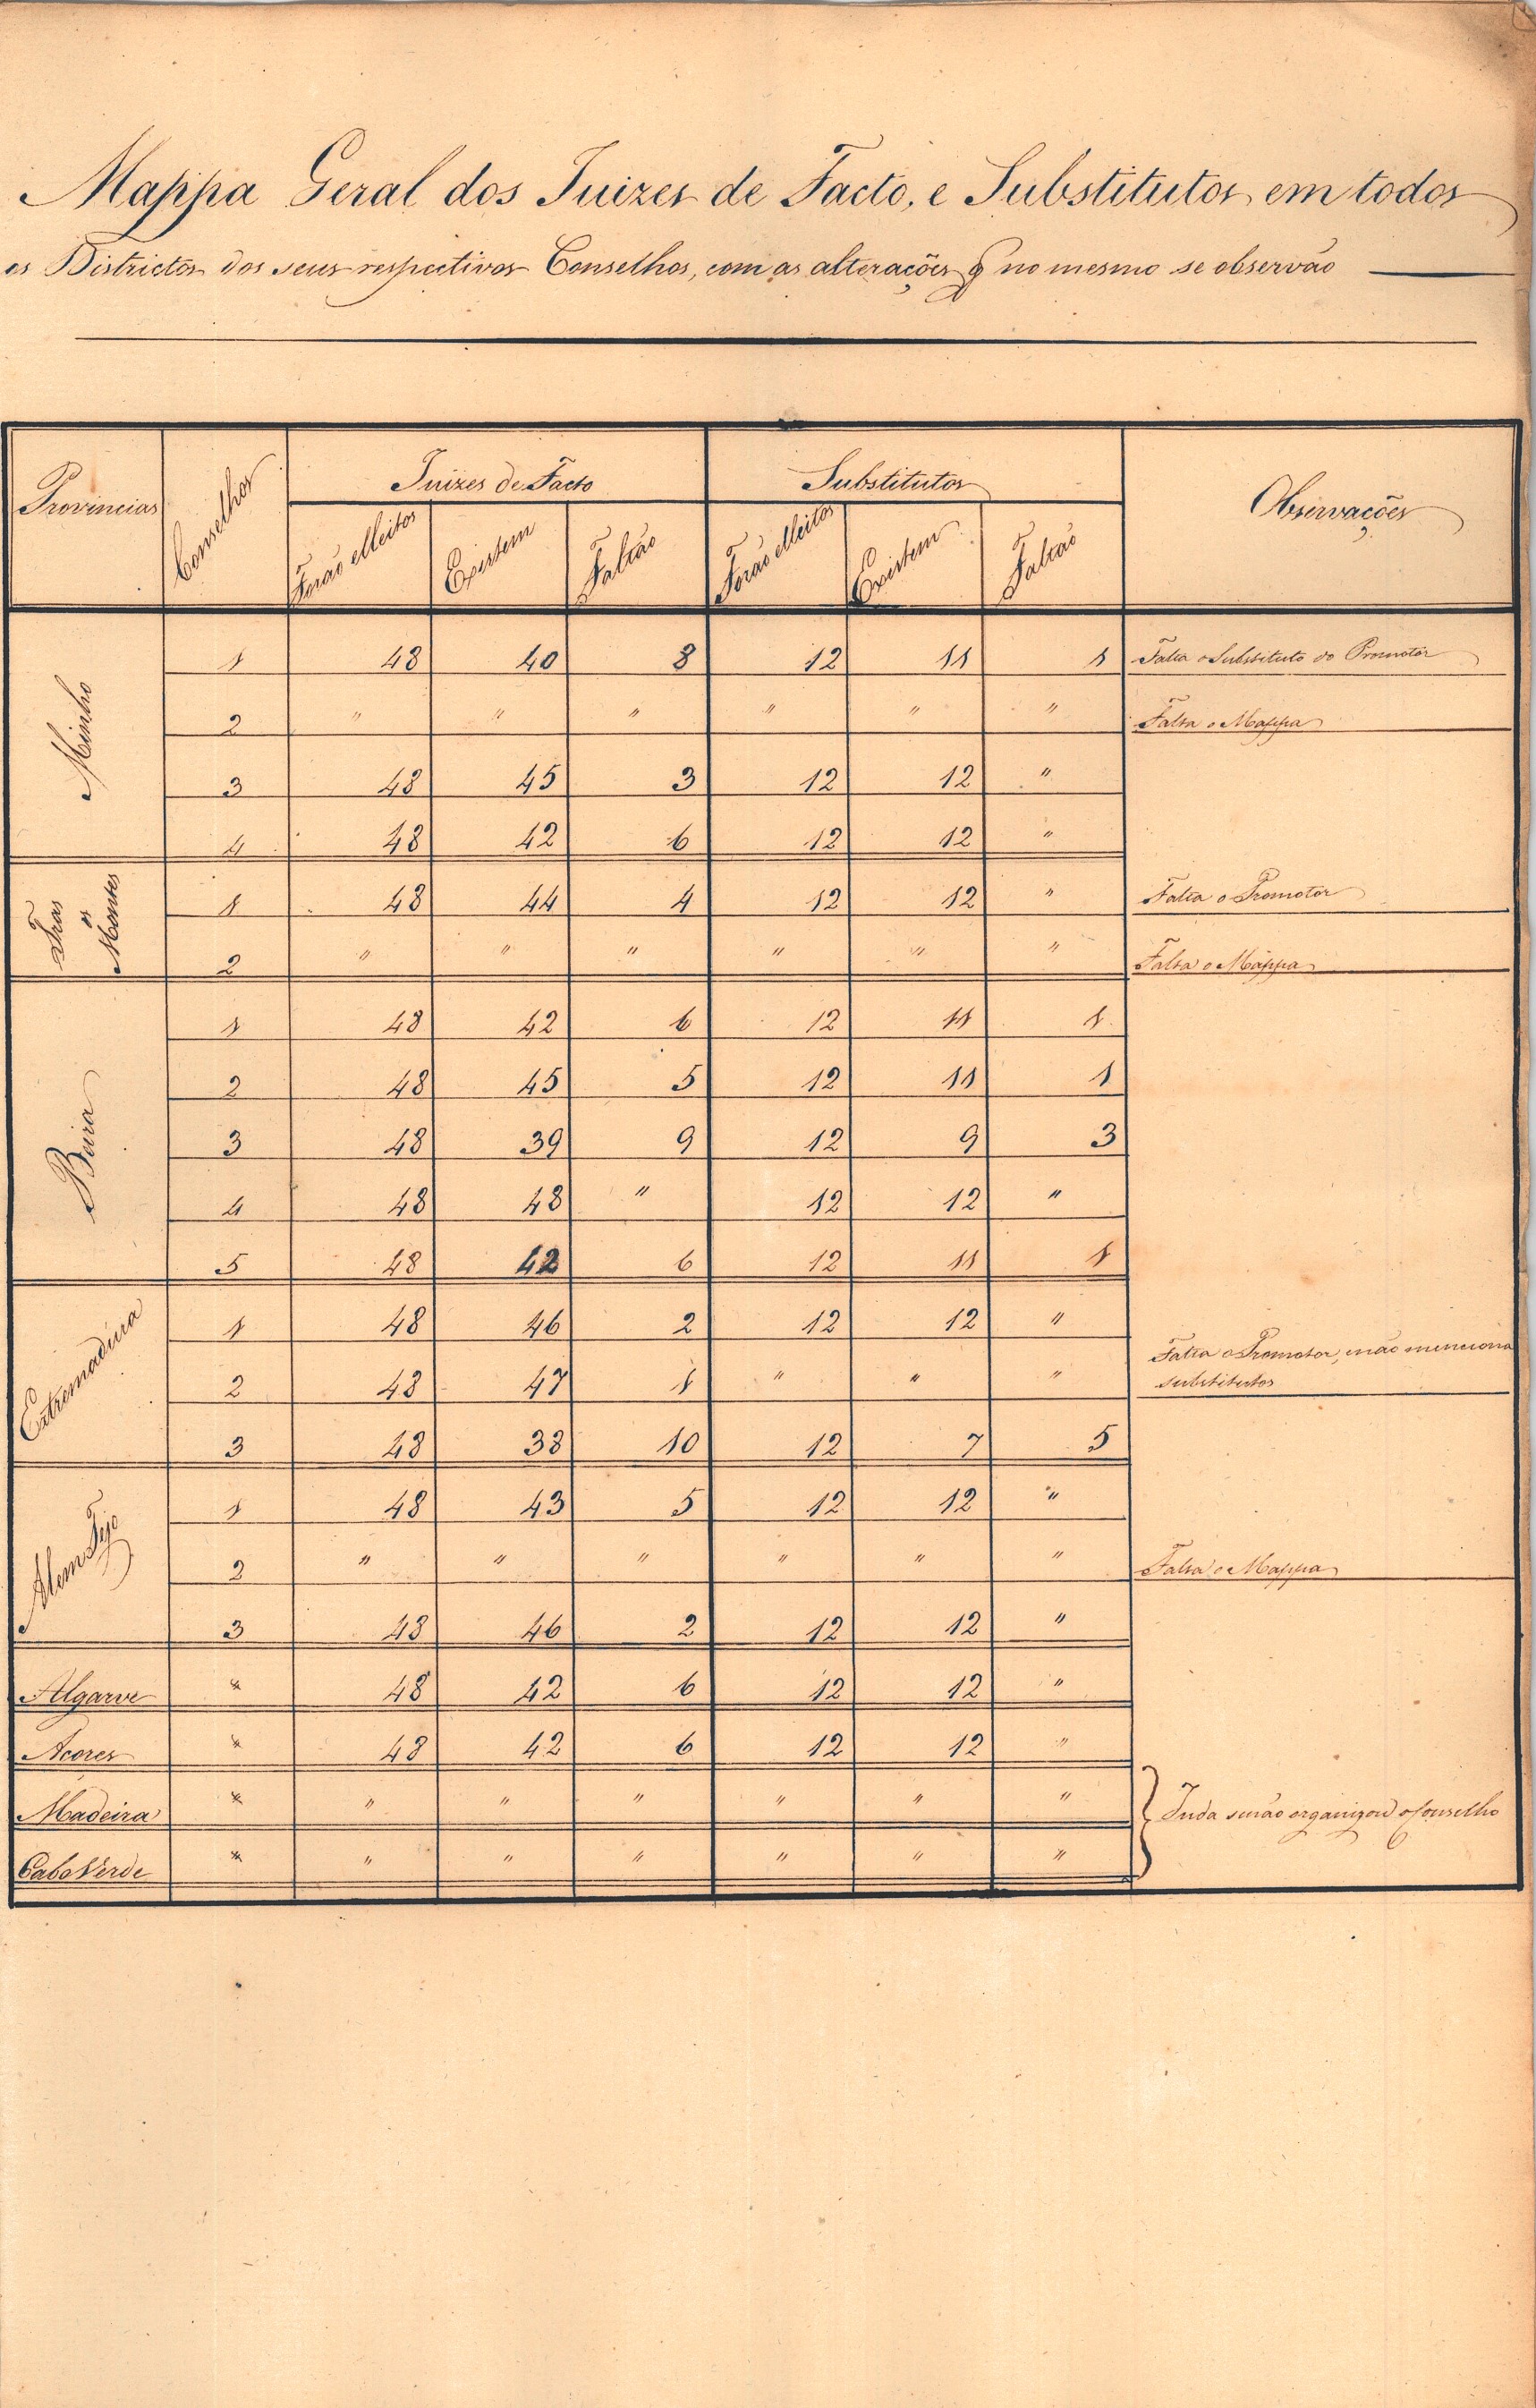 Mappa Geral dos Juizes de Facto, e Substitutos em todos
os Districtos dos seus respectivos Conselhos, com as alterações q̃ no mesmo se observão
Provincias Conselhos Juizes de Facto Substitutos Observações
Forão elleitos Existem Faltão Forão elleitos Existem Faltão
Minho
1 48 40 8 12 11 1 Falta o Substituto do Promotor
2 " " " " " " Falta o Mappa
3 48 45 3 12 12 "
4 48 42 6 12 12 "
Tras os Montes
1 48 44 4 12 12 " Falta o Promotor
2 " " " " " " Falta o Mappa
Beira
1 48 42 6 12 11 1
2 48 45 5 12 11 1
3 48 39 9 12 9 3
4 48 48 " 12 12 "
5 48 42 6 12 11 1
Extremadura
1 48 46 2 12 12 "
2 48 47 1 " " " Falta o Promotor, e não menciona
substitutos
3 48 38 10 12 7 5
Alem Tejo
1 48 43 5 12 12 "
2 " " " " " " Falta o Mappa
3 48 46 2 12 12 "
Algarve " 48 42 6 12 12 "
Acores " 48 42 6 12 12 "
Madeira " " " " " " "
Inda se não organizou o Conselho
Cabo Verde " " " " " " "